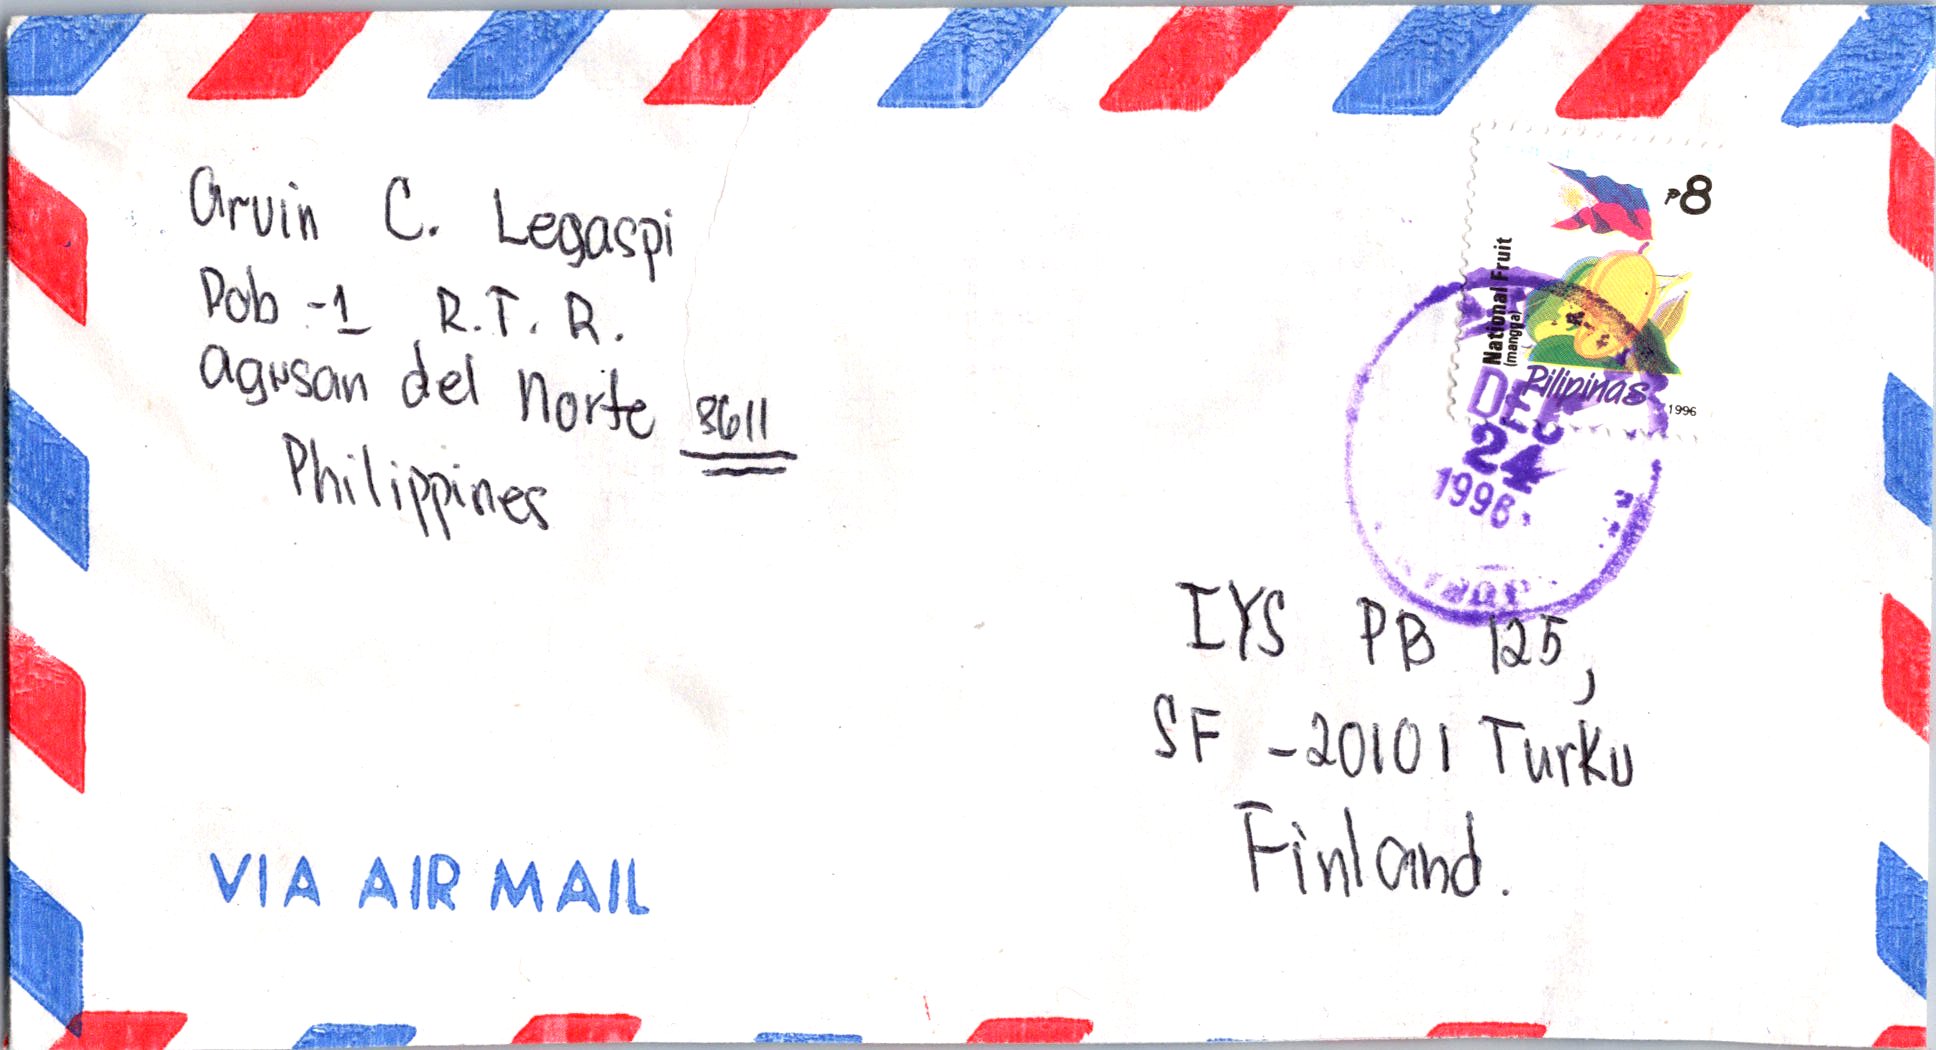 Arvin C. Legaspi
Pob -1 R.T.R.
Agusan del Norte 8611
Philippines
₱8
National Fruit
(mangga)
Pilipinas
1996
DEC
24
1996
IYS PB 125,
SF -20101 Turku
Finland.
VIA AIR MAIL